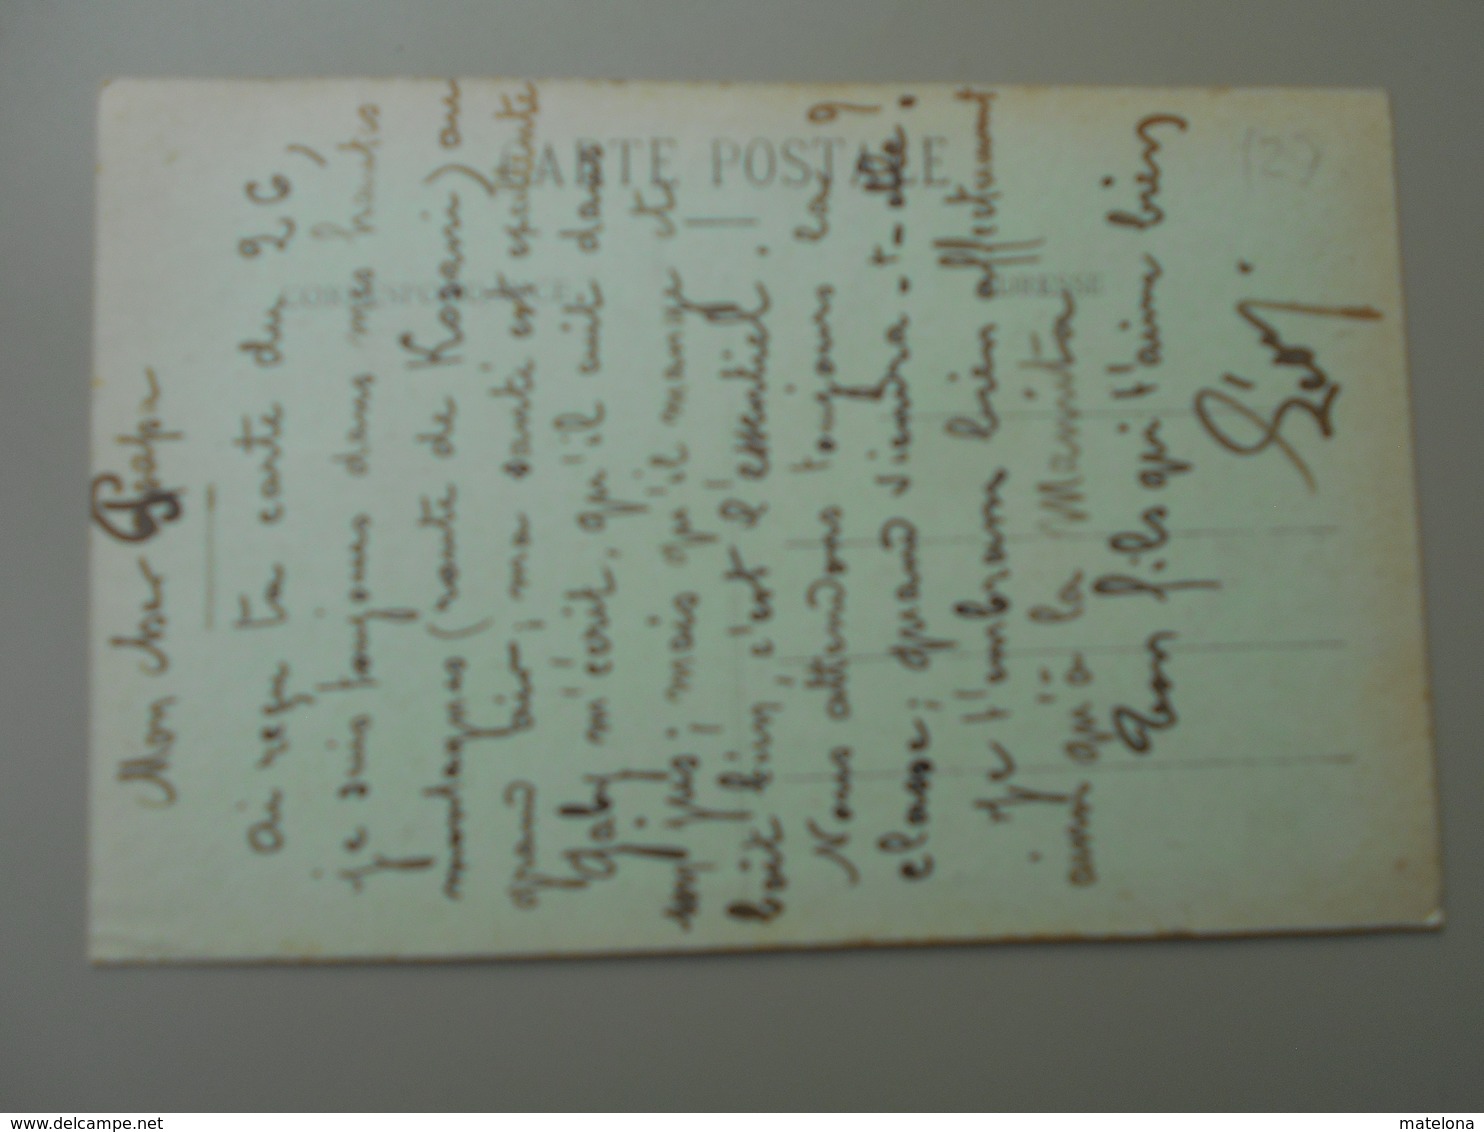 CARTE POSTALE
CORRESPONDANCE
ADRESSE
(29)
Mon cher Papa
ai reçu ta carte du 26,
je suis toujours dans mes hautes
montagnes (route de Kosani) au
grand air, ma santé est excellente
Gaby m'écrit, qu'il cuit dans
son jus; mais qu'il mange et
boit bien, c'est l'essentiel.
Nous attendons toujours la 9
classe; quand viendra-t-elle.
Je t'embrasse bien affectueusement
ainsi qu'à la Mamita
Ton fils qui t'aime bien
delcampe.net
matelona